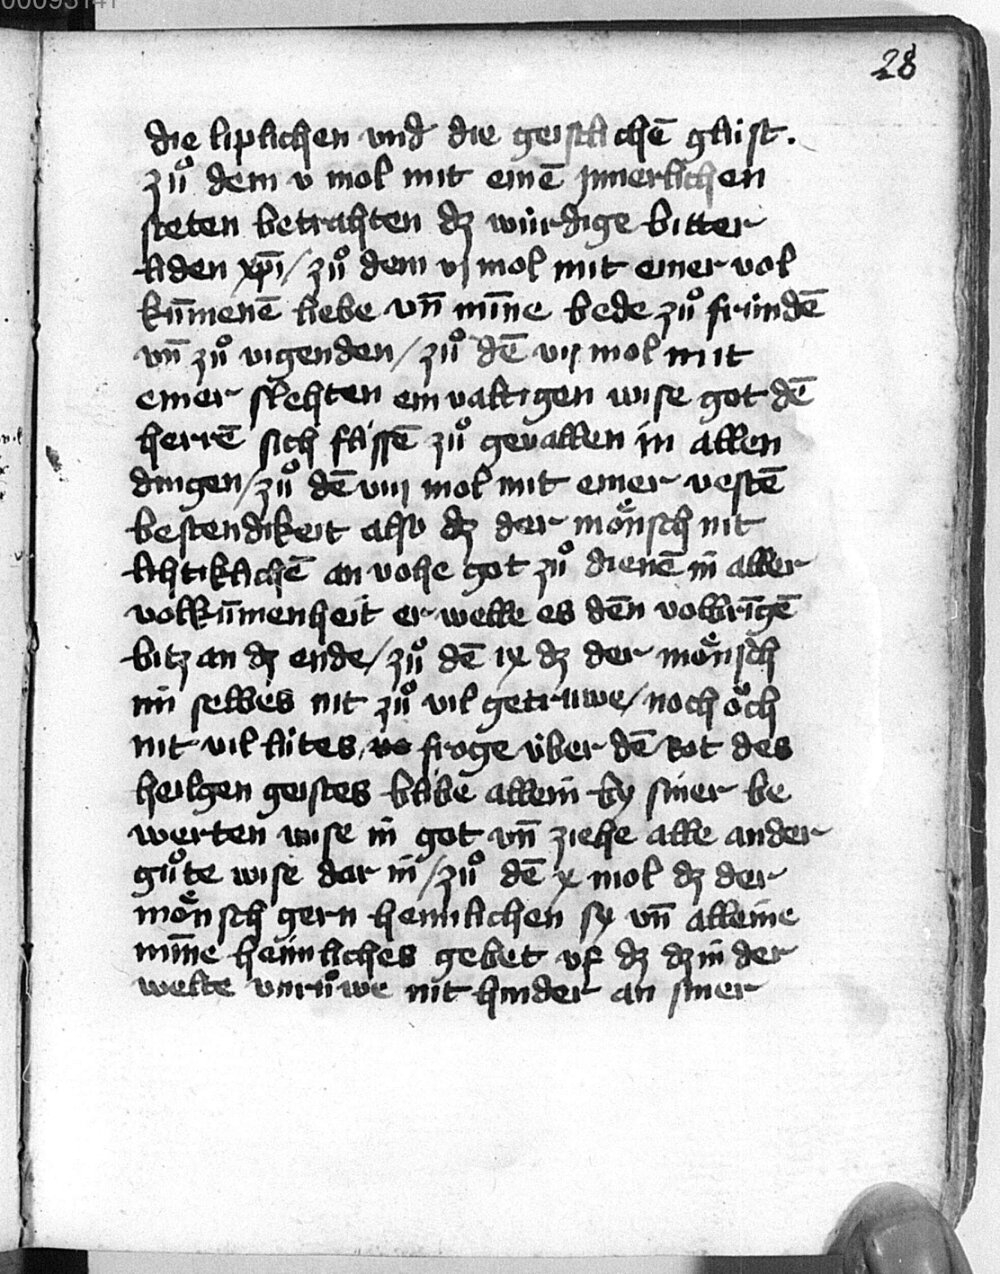 00093141
28
die liplichen vnd die geistlichē glúst.
zů dem v mol mit einē jnnerlichen
steten betrahten dz wúrdige bitter
liden xp̄i / zů dem vj mol mit einer vol
kūmenē liebe vn̄ mīne bede zů frúndē
vn̄ zů vigenden / zů dē vij mol mit
einer slehten einvaltigen wise got dē
herrē sich flissē zů geuallen in allen
dingen / zů dē viij mol mit einer vestē
bestendikeit also dz der mönsch nit
lihtiklichē an vohe got zů dienē in aller
volkūmenheit er welle es dēn volbringē
bitz an dz ende / zů dē ix dz der mönsch
im selbes nit zů vil getruwe / noch öch
nit vil lútes froge úber dē rot des
heilgen geistes blibe allein by siner be
werten wise in got vn̄ ziehe alle ander
gůte wise dar in / zů dē x mol dz der
mönsch gern heimlichen sy vn̄ alleine
mīne heimliches gebet vf dz dz in der
welte vnrůwe nit hinder an siner